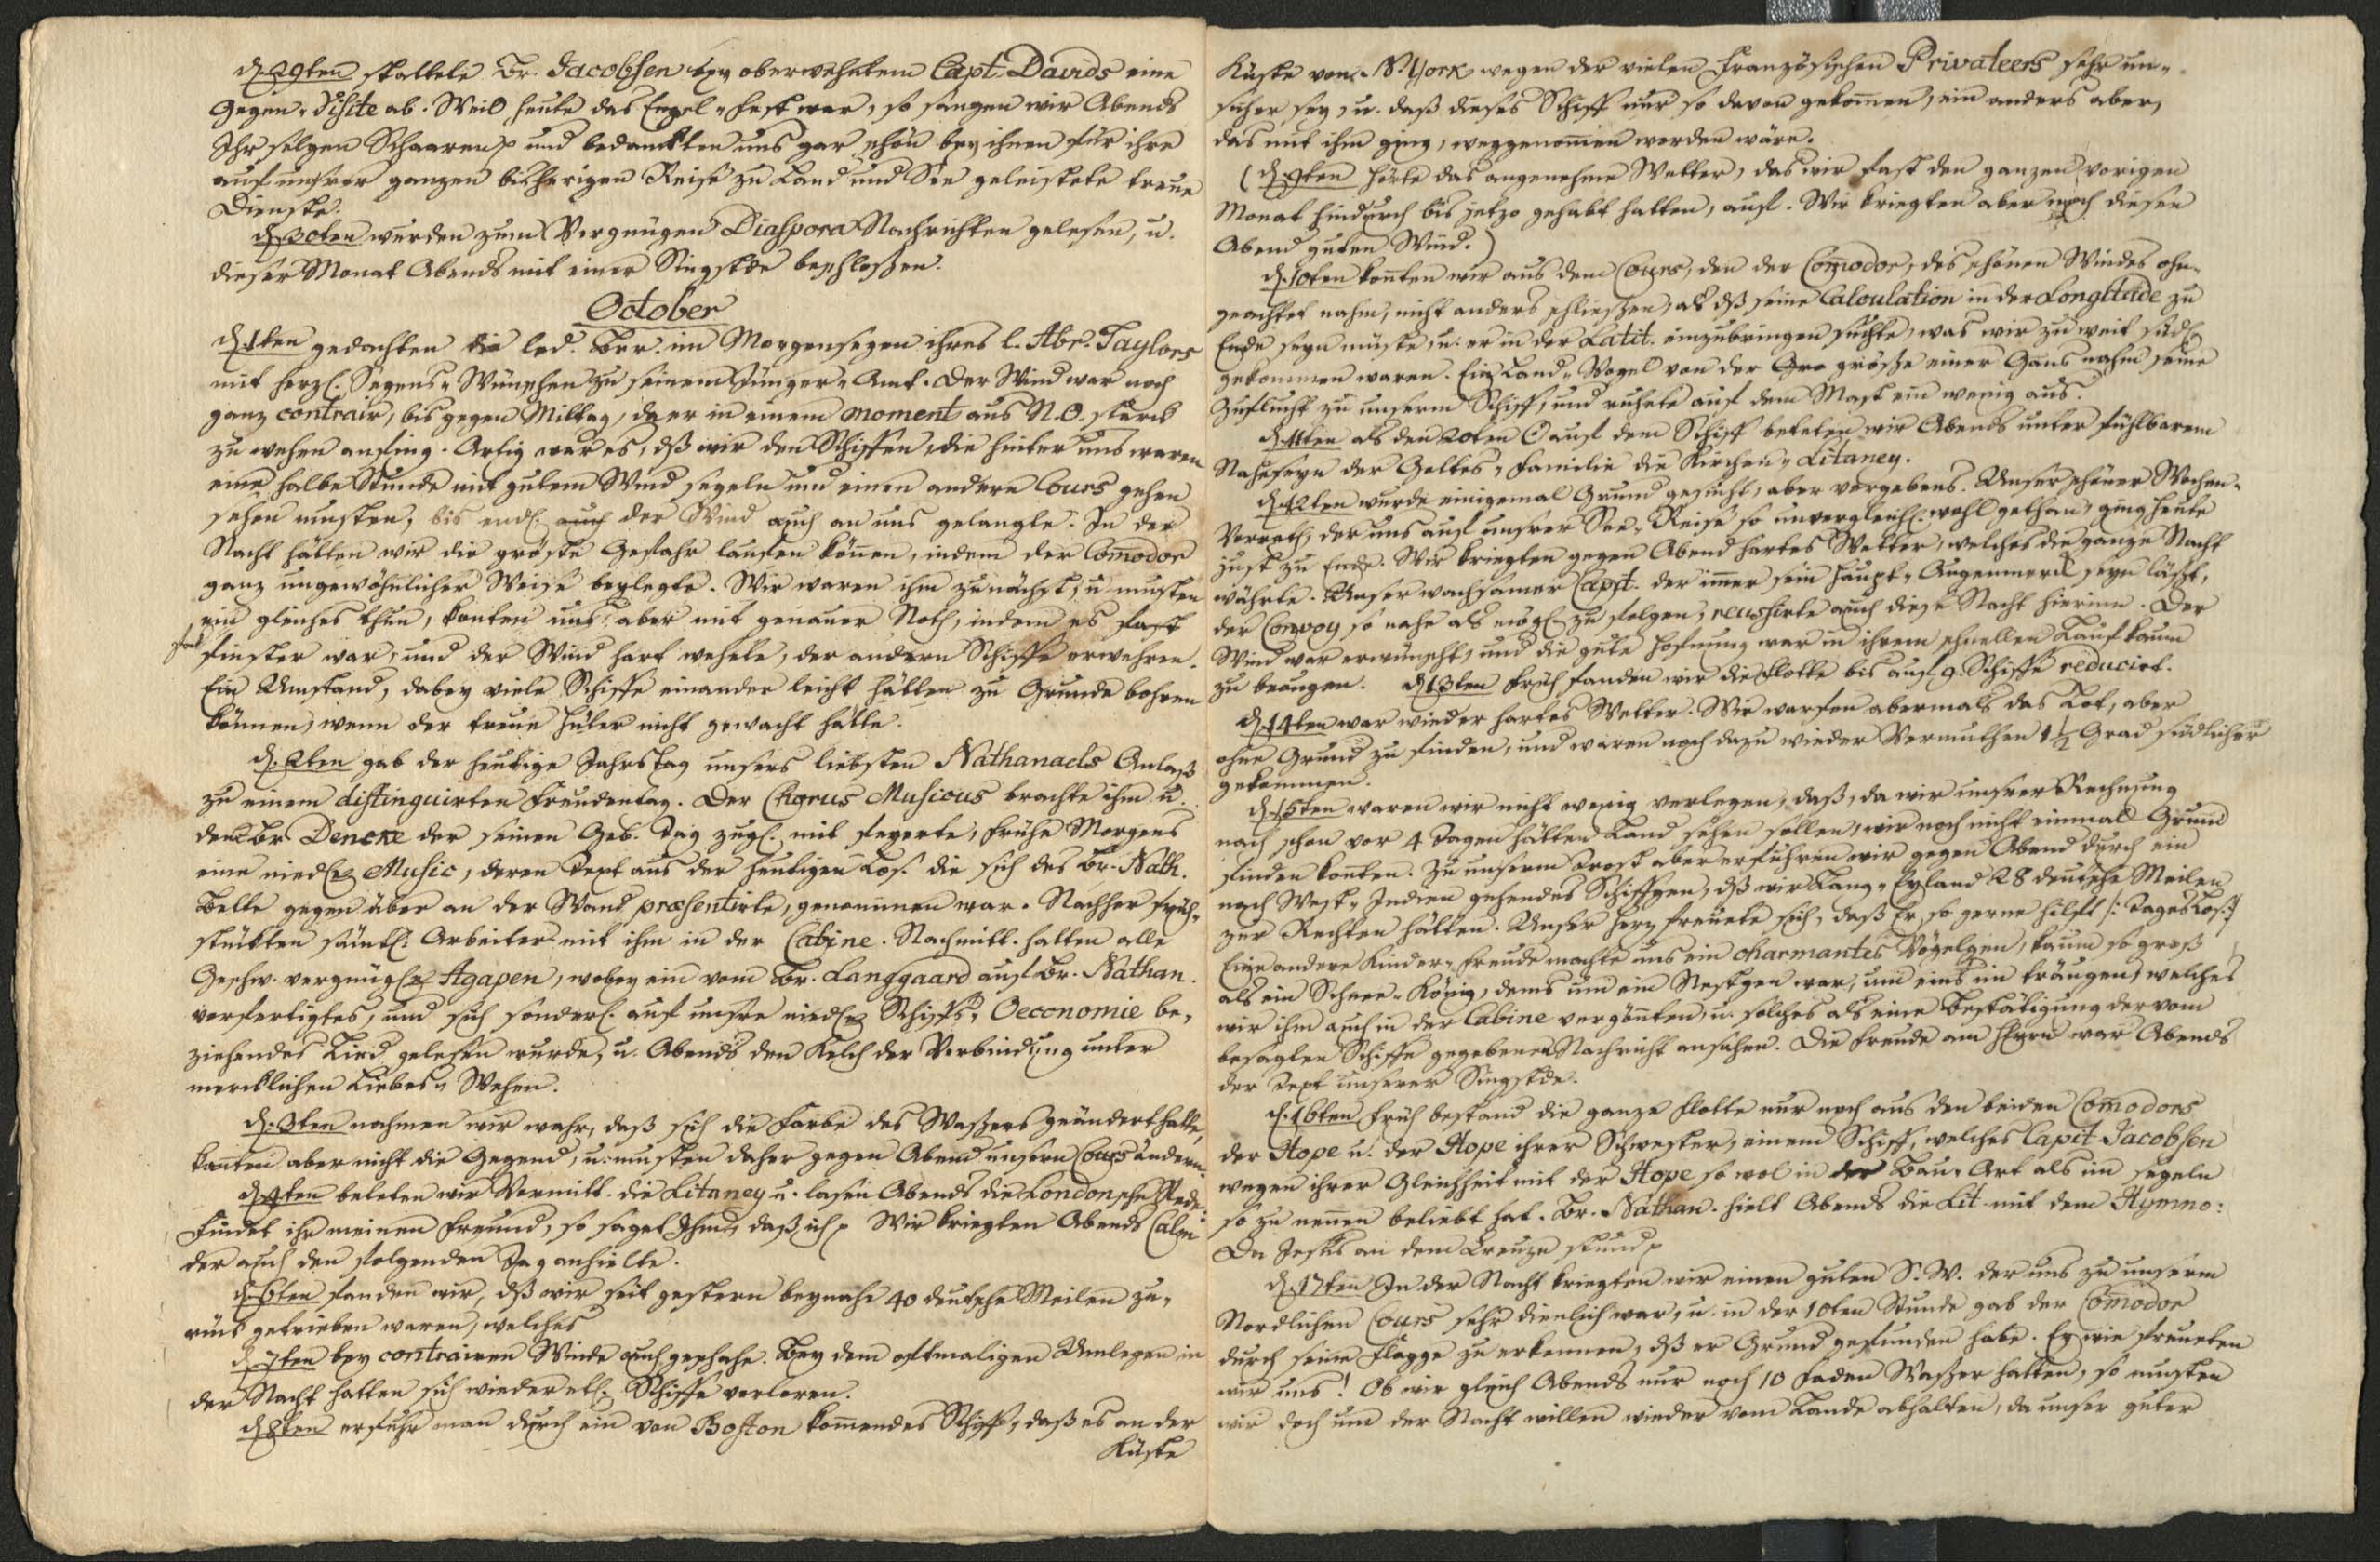 d. 29ten stattete Br. Jacobsen bey oberwehntem Capt. Davids eine
Gegen-Visite ab. Weil heute das Engel-Fest war, so sangen wir Abends
Ihr selgen Schaaren p und bedankten uns gar schön bey ihnen für ihre
auf unsrer ganzen bisherigen Reise zu Land und See geleistete treue
Dienste.
d. 30ten wurden zum Vergnügen Diaspora Nachrichten gelesen, u.
dieser Monat Abends mit einer Singstde beschloßen.
October
d. 1ten gedachten die led. Brr. im Morgensegen ihres l. Abr. Taylors
mit herzl. Segens-Wünschen zu seinem Jünger-Amt. Der Wind war noch
ganz contrair, bis gegen Mittag, da er in einem moment aus N.O. starck
zu wehen anfing. Artig war es, dß wir den Schiffen, die hinter uns waren
eine halbe Stunde mit gutem Wind segeln und einen andern Cours gehen
sehen musten, bis endl. auch der Wind auch an uns gelangte. In der
Nacht hätten wir die gröste Gefahr laufen können, indem der Comodor
ganz ungewöhnlicher Weise beylegte. Wir waren ihm zunächst, u. musten
ein gleiches thun, konten uns aber mit genauer Noth, indem es fast
stock finster war, und der Wind hart wehete, der andern Schiffe erwehren.
Ein Umstand, dabey viele Schiffe einander leicht hätten zu Grunde bohren
können, wenn der treue Hüter nicht gewacht hätte.
d. 2ten gab der heutige Jahrstag unsers liebsten Nathanaels Anlaß
zu einem distinguirten Freudentag. Der Chorus Musicus brachte ihm u.
dem Br. Dencke der seinen Geb. Tag zugl. mit feyerte, frühe Morgens
eine niedl. Music, deren Text aus der heutigen Los. die sich des Br. Nath.
Bette gegen über an der Wand præsentirte, genommen war. Nachher früh-
stükten sämtl. Arbeiter mit ihm in der Cabine. Nachmitt. hatten alle
Geschw. vergnügl. Agapen, wobey ein vom Br. Langgaard auf Br. Nathan.
verfertigtes, und sich sonderl. auf unsre niedl. Schiffs-Oeconomie be-
ziehendes Lied gelesen wurde, u. Abends den Kelch der Verbindung unter
mercklichen Liebes-Wehen.
d. 3ten nahmen wir wahr, daß sich die Farbe des Waßers geändert hatte,
kanten aber nicht die Gegend, u. musten daher gegen Abend unsern Cours ändern.
d. 4ten beteten wir Vormitt. die Litaney u. lasen Abends die Londonsche Rede:
Findet ihr meinen Freund, so saget Ihm, daß ich p Wir kriegten Abends Calm
der auch den folgenden Tag anhielte.
d. 6ten fanden wir, dß wir seit gestern beynahe 40 deutsche Meilen zu-
rück getrieben waren, welches
d. 7ten bey contrairen Winde auch geschahe. Bey dem oftmaligen Umlegen in
der Nacht hatten sich wieder etl. Schiffe verloren.
d. 8ten erfuhr man durch ein von Boston komendes Schiff, daß es an der
Küste
Küste von N. York wegen der vielen Französischen Privateers sehr un-
sicher sey, u. daß dieses Schiff nur so davon gekomen, ein anders aber,
das mit ihm ging, weggenomen worden wäre.
(d. 9ten hörte das angenehme Wetter, das wir fast den ganzen vorigen
Monat hindurch bis jetzo gehabt hatten, auf. Wir kriegten aber noch diesen
Abend guten Wind.)
d. 10ten konten wir aus dem Cours, den der Comodor, des schönen Windes ohn-
geachtet nahm, nicht anders schließen, als dß seine Calculation in der Longitude zu
Ende seyn müste, u. er in der Latit. einzubringen suchte, was wir zu weit südl.
gekommen waren. Ein Land-Vogel von der Gro größe einer Gans nahm seine
Zuflucht zu unserm Schiff, und ruhete auf dem Mast ein wenig aus.
d. 11ten als den 20ten ☉ auf dem Schiff beteten wir Abends unter fühlbarem
Naheseyn der Gottes-Familie die Kirchen-Litaney.
d. 12ten wurde einigemal Grund gesucht, aber vergebens. Unser schöner Wochen-
Vorrath, der uns auf unsrer See-Reise so unvergleichl. wohl gethan, ging heute
just zu Ende. Wir kriegten gegen Abend hartes Wetter, welches die ganze Nacht
währte. Unser wachsamer Capit. der imer sein Haupt-Augenmerck seyn läßt,
der Convoy so nahe als mögl. zu folgen, reussirte auch diese Nacht hierinn. Der
Wind war erwünscht, und die gute Hofnung war in ihrem schnellen Lauf kaum
zu beäugen. d. 13ten früh fanden wir die Flotte bis auf 9 Schiffe reducirt.
d. 14ten war wieder hartes Wetter. Wir warfen abermals das Lot, aber
ohne Grund zu finden, und waren noch dazu wieder Vermuthen 1½ Grad südlicher
gekommen.
d. 15ten waren wir nicht wenig verlegen, daß, da wir unsrer Rechnung
nach schon vor 4 Tagen hätten Land sehen sollen, wir noch nicht einmal Grund
finden konten. Zu unserm Trost aber erfuhren wir gegen Abend durch ein
nach West-Indien gehendes Schiffgen, dß wir Lang-Eyland 28 deutsche Meilen
zur Rechten hätten. Unser Herz freuete sich, daß Er so gerne hilft /: Tages Los. :/
Eine andere Kinder-Freude machte uns ein charmantes Vögelgen, kaum so groß
als ein Schnee-König, dems um ein Nestgen war, um eins im träugen, welches
wir ihm auch in der Cabine vergönten, u. solches als eine Bestätigung der vom
besagten Schiffe gegebenen Nachricht ansahen. Die Freude am HErrn war Abends
der Text unserer Singstde.
d. 16ten früh bestand die ganze Flotte nur noch aus den beiden Comodors
der Hope u. der Hope ihrer Schwester, einem Schiff, welches Capit. Jacobsen
wegen ihrer Gleichheit mit der Hope so wol in der Bau-Art als im segeln
so zu nennen beliebt hat. Br. Nathan. hielt Abends die Lit. mit dem Hymno:
Da Jesus an dem Creuze stund p
d. 17ten In der Nacht kriegten wir einen guten S.W. der uns zu unserm
Nordlichen Cours sehr dienlich war, u. in der 10ten Stunde gab der Comodor
durch seine Flagge zu erkennen, dß er Grund gefunden habe. Ey wie freueten
wir uns! Ob wir gleich Abends nur noch 10 Faden Waßer hatten, so musten
wir doch um der Nacht willen wieder vom Lande abhalten, da unser guter